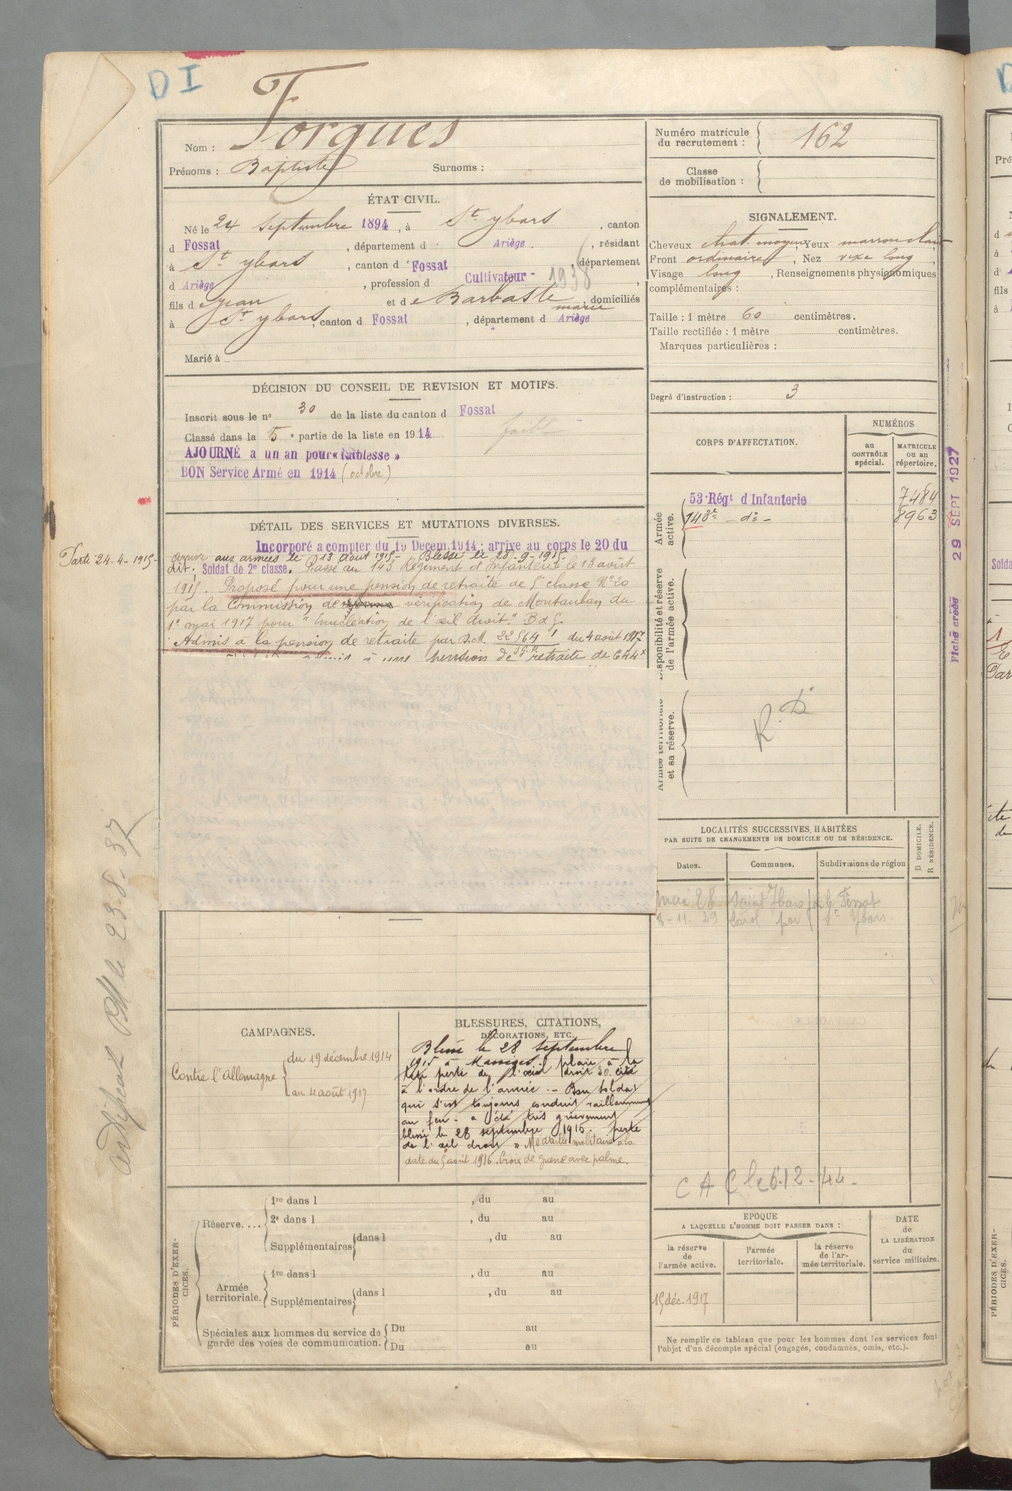 DI
Nom : Forgues
Prénoms : Baptiste Surnoms :
Numéro matricule du recrutement : 162
Classe de mobilisation :
ÉTAT CIVIL.
Né le 24 septembre 1894, à St ybars, canton
d Fossat, département d Ariège, résidant
à St ybars, canton d Fossat département
d Ariège, profession d Cultivateur - 1938
fils de Jean et de Barbaste marie, domiciliés
à St ybars, canton d Fossat, département d Ariège
Marié à
SIGNALEMENT.
Cheveux chat. moyen, Yeux marron clair
Front ordinaire, Nez long
Visage long, Renseignements physionomiques
complémentaires :
Taille : 1 mètre 60 centimètres.
Taille rectifiée : 1 mètre centimètres.
Marques particulières :
Degré d'instruction : 3
DÉCISION DU CONSEIL DE REVISION ET MOTIFS.
Inscrit sous le n° 30 de la liste du canton d Fossat
Classé dans la 5e partie de la liste en 1914
AJOURNÉ a un an pour « faiblesse »
BON Service Armé en 1914 (octobre)
faible
DÉTAIL DES SERVICES ET MUTATIONS DIVERSES.
Incorporé a compter du 19 Decem. 1914 ; arrive au corps le 20 du
aux armées le 13 août 1915 - Blessé le 28-9-1915
dit. Soldat de 2e classe. Passé au 143 Régiment d'Infanterie le 13 août
1915. Proposé pour une pension de retraite de 5e classe N° 20
par la Commission de vérification de Montauban du
1er mai 1917 pour " énucléation de l'œil droit."
Admis à la pension de retraite par D.M. 22564 du 4 août 1917
pension de retraite de 644
Parte 24-4-1915-
CORPS D'AFFECTATION.
NUMÉROS
au CONTRÔLE spécial.
MATRICULE ou au répertoire.
Armée active.
53 Régt d'Infanterie 7484
143e do - 8963
Disponibilité et réserve de l'armée active.
Armée territoriale et sa réserve.
R. D
29 SEPT 1927
Fiche créée
LOCALITÉS SUCCESSIVES HABITÉES
PAR SUITE DE CHANGEMENTS DE DOMICILE OU DE RÉSIDENCE.
Dates. Communes. Subdivisions de région
D DOMICILE.
R RÉSIDENCE.
mai 28 Saint Ybars par le Fossat
8-11-29 par St Ybars
le 23.8.37
CAMPAGNES.
Contre l'Allemagne
du 19 décembre 1914
au 4 août 1917
BLESSURES, CITATIONS,
DÉCORATIONS, ETC.
Blessé le 28 septembre
1915 à Massiges plaie à la
tête perte de l'œil droit. Cité
à l'ordre de l'armée. - Bon soldat
qui s'est toujours conduit vaillamment
au feu - a été très grièvement
blessé le 28 septembre 1915 - perte
de l'œil droit " Médaille militaire à la
date du 5 août 1916. Croix de guerre avec palme.
C A C le 6.12-44-
PÉRIODES D'EXERCICES.
Réserve....
1re dans l , du au
2e dans l , du au
Supplémentaires dans l , du au
Armée territoriale.
1re dans l , du au
Supplémentaires dans l , du au
Spéciales aux hommes du service de
garde des voies de communication.
Du au
Du au
EPOQUE
A LAQUELLE L'HOMME DOIT PASSER DANS :
la réserve de l'armée active.
l'armée territoriale.
la réserve de l'armée territoriale.
DATE de LA LIBÉRATION du service militaire.
15 déc. 1917
Ne remplir ce tableau que pour les hommes dont les services font
l'objet d'un décompte spécial (engagés, condamnés, omis, etc.).